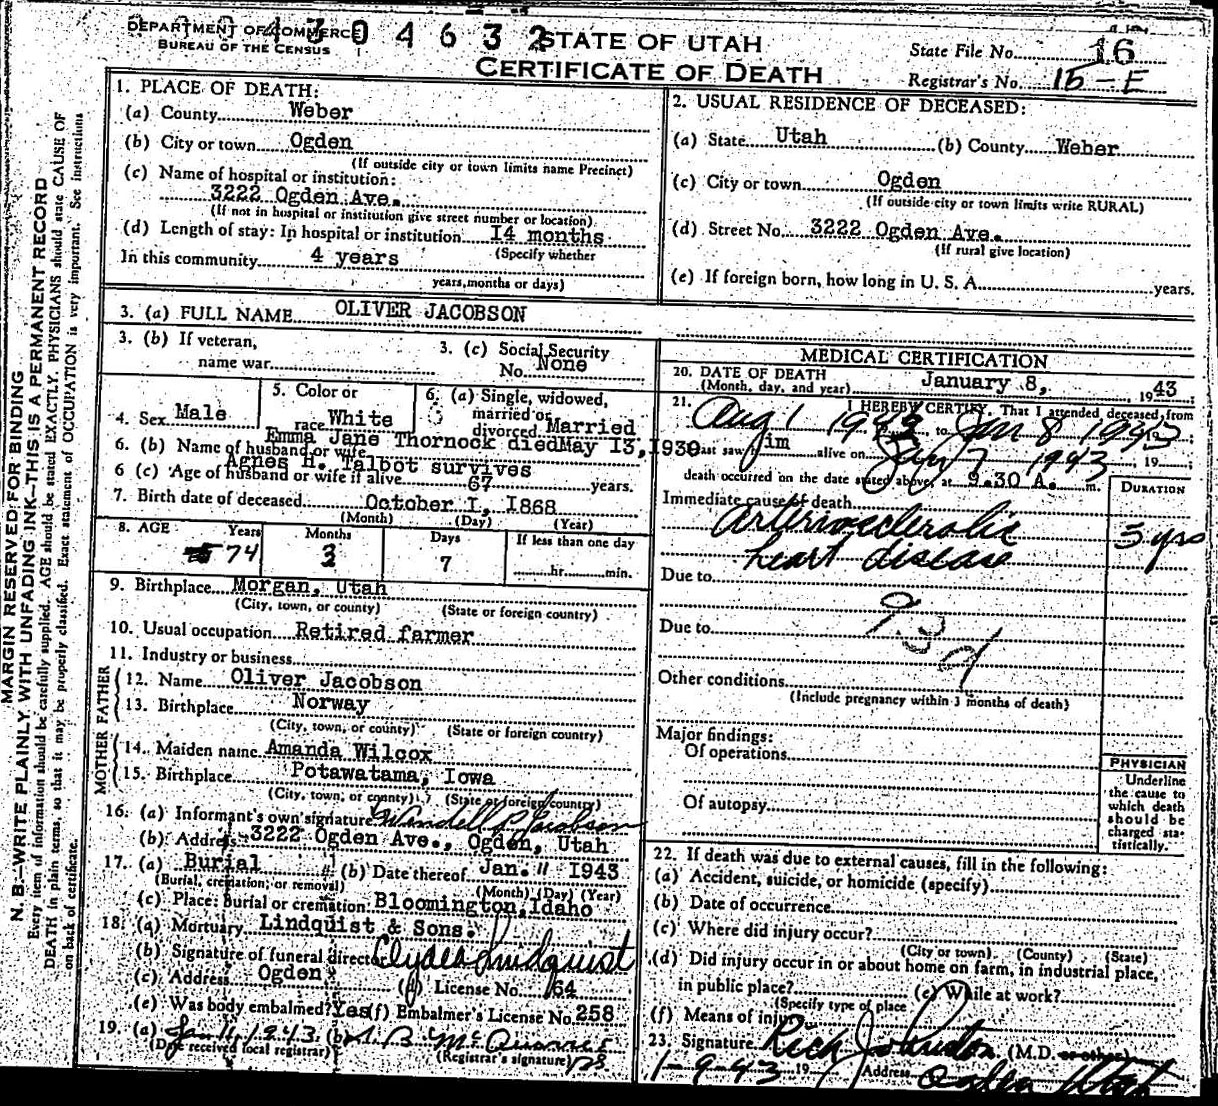 DEPARTMENT OF COMMERCE
BUREAU OF THE CENSUS
304632
STATE OF UTAH
CERTIFICATE OF DEATH
State File No. 16
Registrar's No. 15-E
MARGIN RESERVED FOR BINDING
N. B.—WRITE PLAINLY, WITH UNFADING INK—THIS IS A PERMANENT RECORD
Every item of information should be carefully supplied. AGE should be stated EXACTLY. PHYSICIANS should state CAUSE OF
DEATH in plain terms, so that it may be properly classified. Exact statement of OCCUPATION is very important. See instructions
on back of certificate.
1. PLACE OF DEATH:
(a) County Weber
(b) City or town Ogden
(If outside city or town limits name Precinct)
(c) Name of hospital or institution:
3222 Ogden Ave.
(If not in hospital or institution give street number or location)
(d) Length of stay: In hospital or institution I4 months
(Specify whether
In this community 4 years
years, months or days)
2. USUAL RESIDENCE OF DECEASED:
(a) State Utah (b) County Weber
(c) City or town Ogden
(If outside city or town limits write RURAL)
(d) Street No. 3222 Ogden Ave.
(If rural give location)
(e) If foreign born, how long in U. S. A. years.
3. (a) FULL NAME OLIVER JACOBSON
3. (b) If veteran,
name war
3. (c) Social Security
No. None
4. Sex Male
5. Color or
race White
6. (a) Single, widowed,
married or
divorced Married
6. (b) Name of husband or wife
Emma Jane Thornock died May I3, I930
Agnes H. Talbot survives
6 (c) Age of husband or wife if alive 67 years.
7. Birth date of deceased October I, I868
(Month) (Day) (Year)
8. AGE Years Months Days If less than one day
74 3 7 hr. min.
9. Birthplace Morgan, Utah
(City, town, or county) (State or foreign country)
10. Usual occupation Retired farmer
11. Industry or business
FATHER
12. Name Oliver Jacobson
13. Birthplace Norway
(City, town, or county) (State or foreign country)
MOTHER
14. Maiden name Amanda Wilcox
15. Birthplace Potawatama, Iowa
(City, town, or county) (State or foreign country)
16. (a) Informant's own signature Wendell P Jacobson
(b) Address 3222 Ogden Ave., Ogden, Utah
17. (a) Burial (b) Date thereof Jan. 11 I943
(Burial, cremation, or removal) (Month) (Day) (Year)
(c) Place: burial or cremation Bloomington, Idaho
18. (a) Mortuary Lindquist & Sons.
(b) Signature of funeral director Clyde Lindquist
(c) Address Ogden (d) License No. 164
(e) Was body embalmed? Yes (f) Embalmer's License No. 258
19. (a) Jan 11, 1943 (b)
(Date received local registrar) (Registrar's signature)
MEDICAL CERTIFICATION
20. DATE OF DEATH
(Month, day, and year) January 8, 1943
21. I HEREBY CERTIFY, That I attended deceased from
Aug 1 1942 to Jan 8 1943, 19
last saw him alive on Jan 7 1943, 19
death occurred on the date stated above, at 9.30 A. m.
DURATION
Immediate cause of death
Arteriosclerotic
heart disease
3 yrs
Due to
Due to
93d
Other conditions
(Include pregnancy within 3 months of death)
Major findings:
Of operations
Of autopsy
PHYSICIAN
Underline
the cause to
which death
should be
charged sta-
tistically.
22. If death was due to external causes, fill in the following:
(a) Accident, suicide, or homicide (specify)
(b) Date of occurrence
(c) Where did injury occur?
(City or town) (County) (State)
(d) Did injury occur in or about home on farm, in industrial place,
in public place? (e) While at work?
(Specify type of place
(f) Means of injury
23. Signature Rich Johnston (M.D. or other)
1-9-43 19 Address Ogden Utah